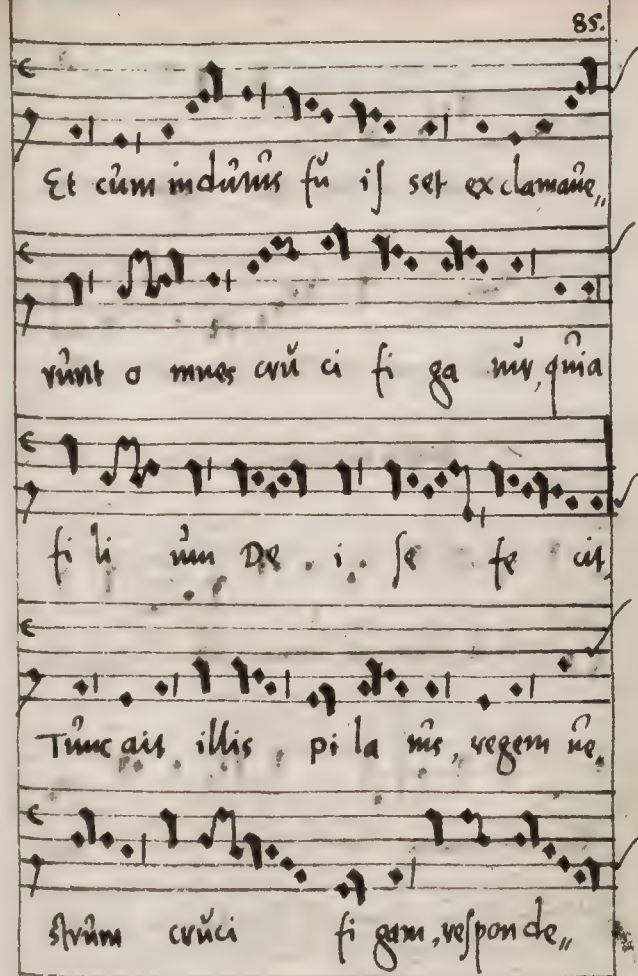 85.
Et cûm indûtus fŭ iſ set ex clamaûe„
rûnt o mnes crŭ ci fi ga tŭr, qûia
fi li ûm De i se fe cit,
Tûnc ait illis pi la tûs, regem ûe„
strûm crŭci fi gam, reſpon de„